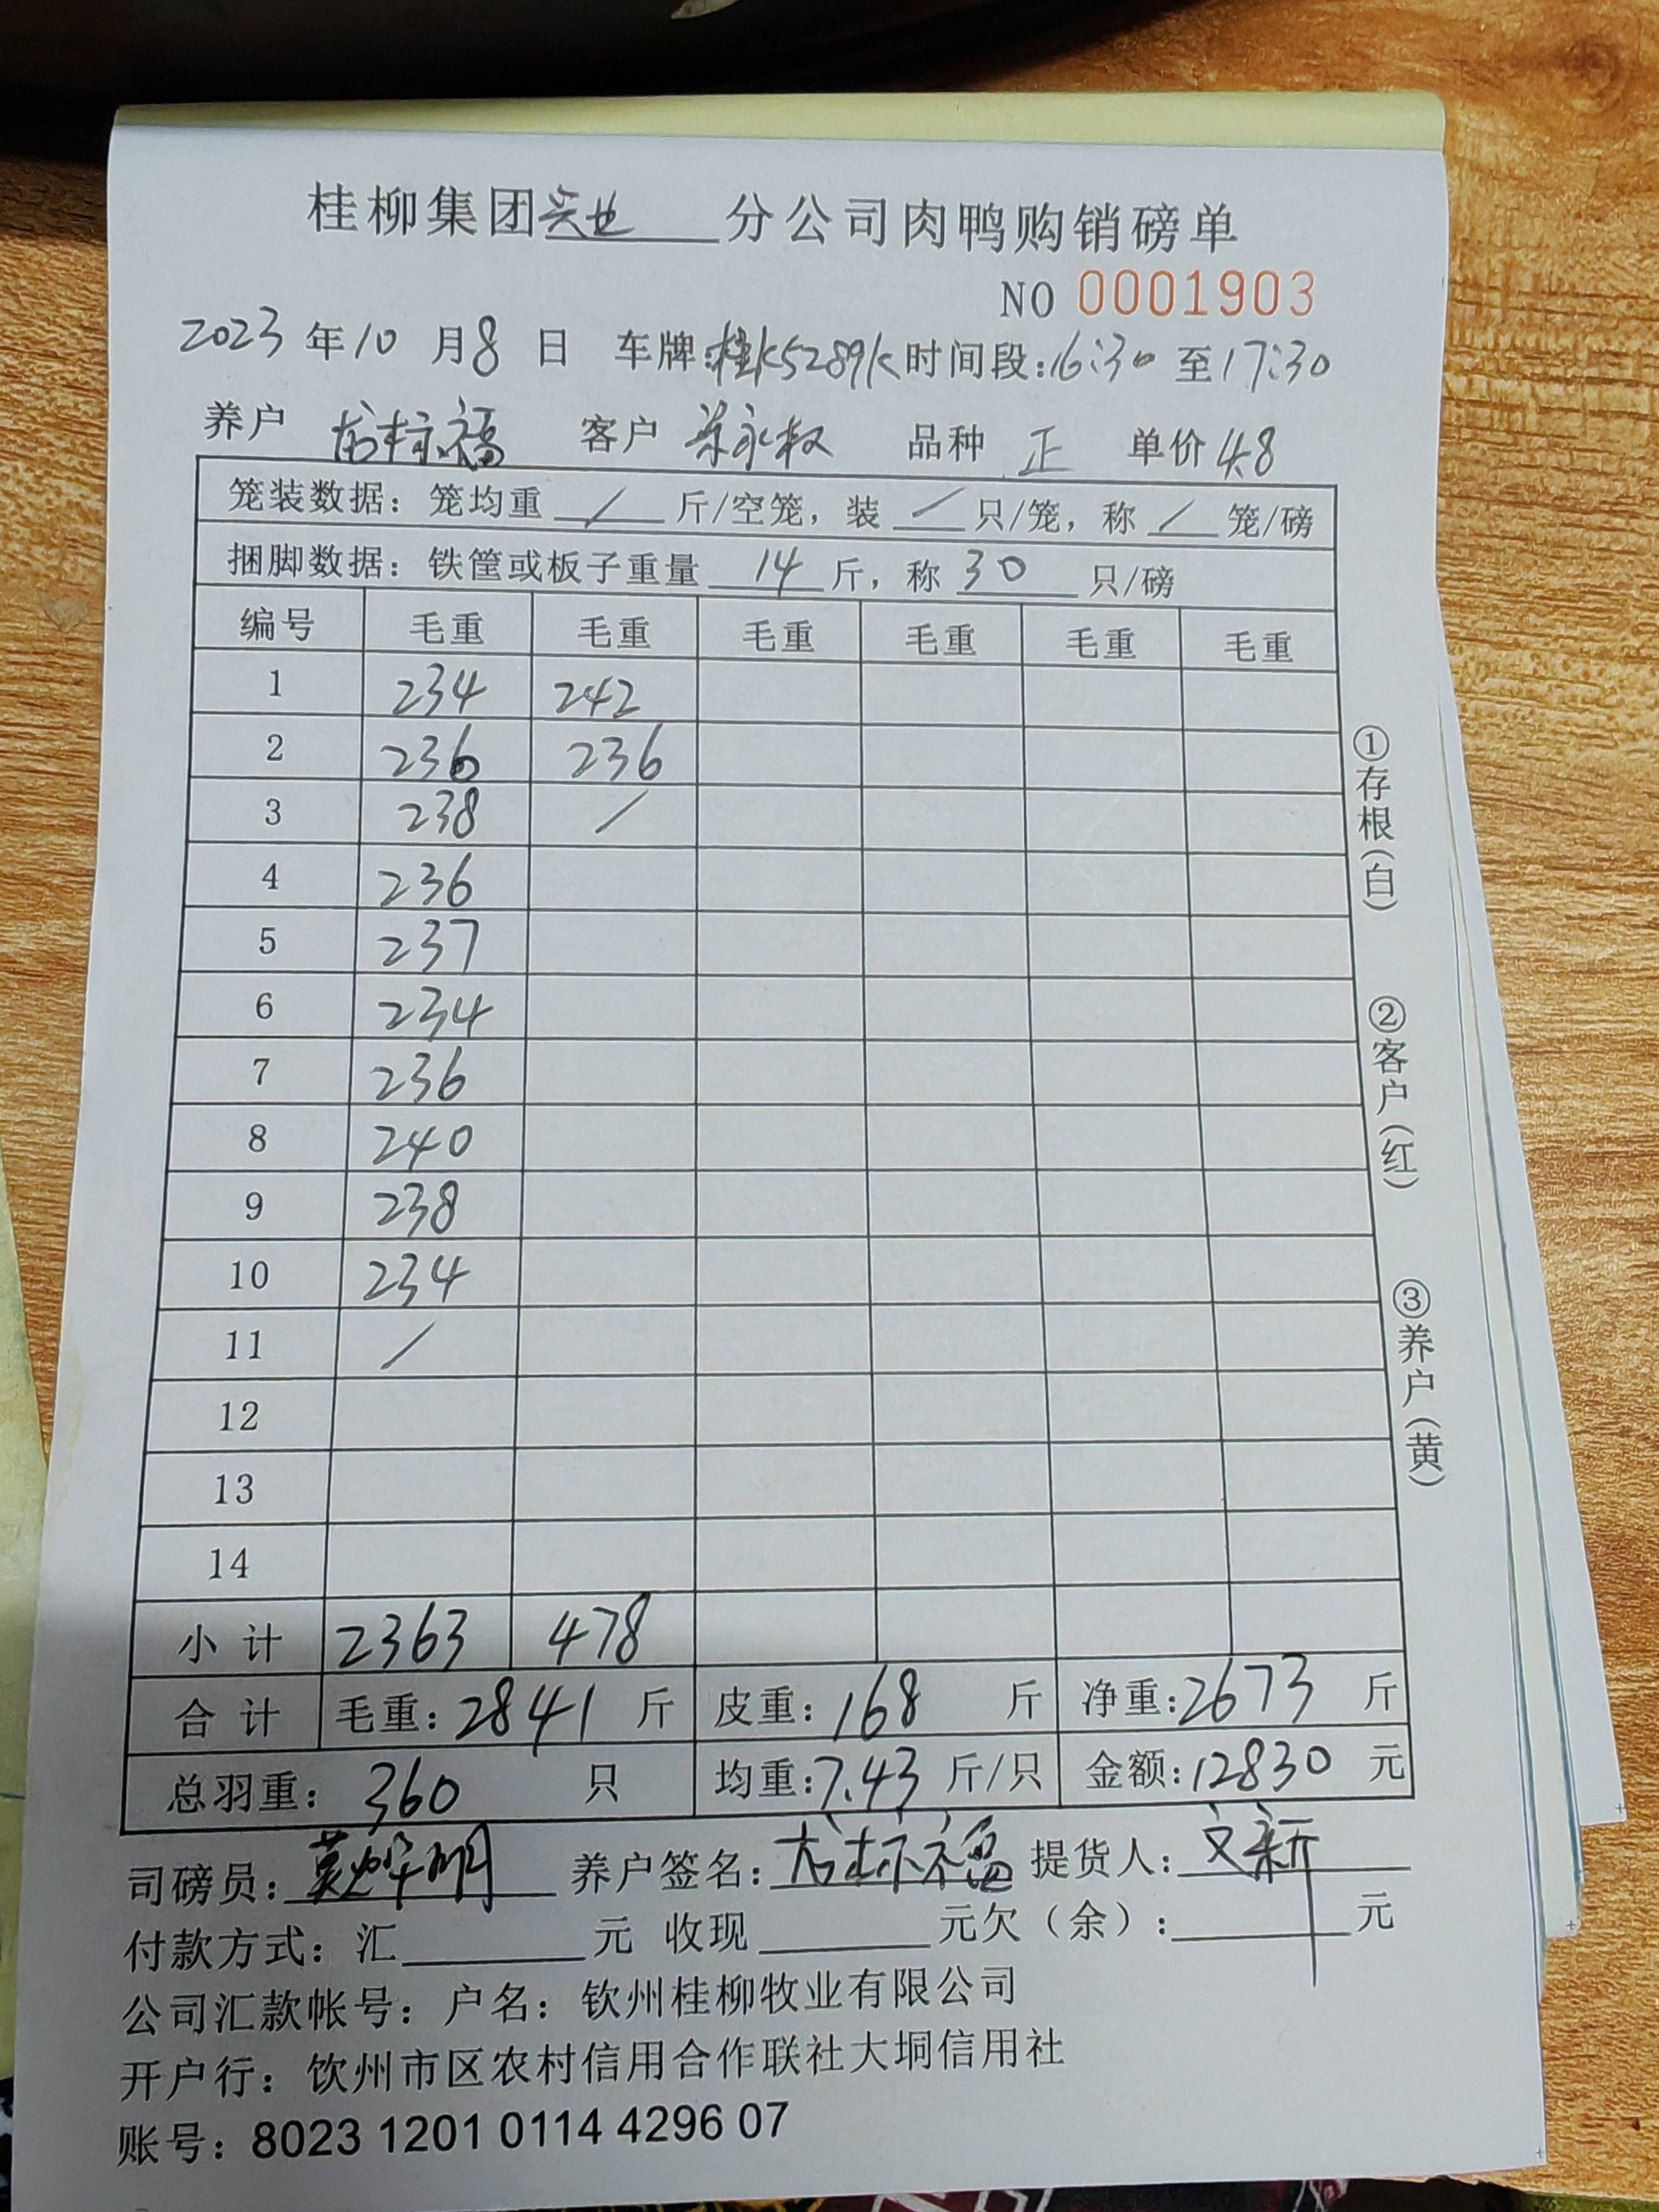 桂柳集团兴业分公司肉鸭购销磅单
NO 0001903
2023年10月8日 车牌:桂K5289K时间段:16:30至17:30
养户 福 客户 永权 品种 正 单价4.8
笼装数据：笼均重 / 斤/空笼，装 / 只/笼，称 / 笼/磅
捆脚数据：铁筐或板子重量 14 斤，称 30 只/磅
编号 毛重 毛重 毛重 毛重 毛重 毛重
1 234 242
2 236 236
3 238 /
4 236
5 237
6 234
7 236
8 240
9 238
10 234
11 /
12
13
14
小计 2363 478
合计 毛重：2841 斤 皮重：168 斤 净重：2673 斤
总羽重：360 只 均重：7.43 斤/只 金额：12830 元
司磅员：莫明 养户签名：福 提货人：文新
付款方式：汇 元 收现 元欠（余）： 元
公司汇款帐号：户名：钦州桂柳牧业有限公司
开户行：钦州市区农村信用合作联社大垌信用社
账号：8023 1201 0114 4296 07
①存根(白)
②客户(红)
③养户(黄)